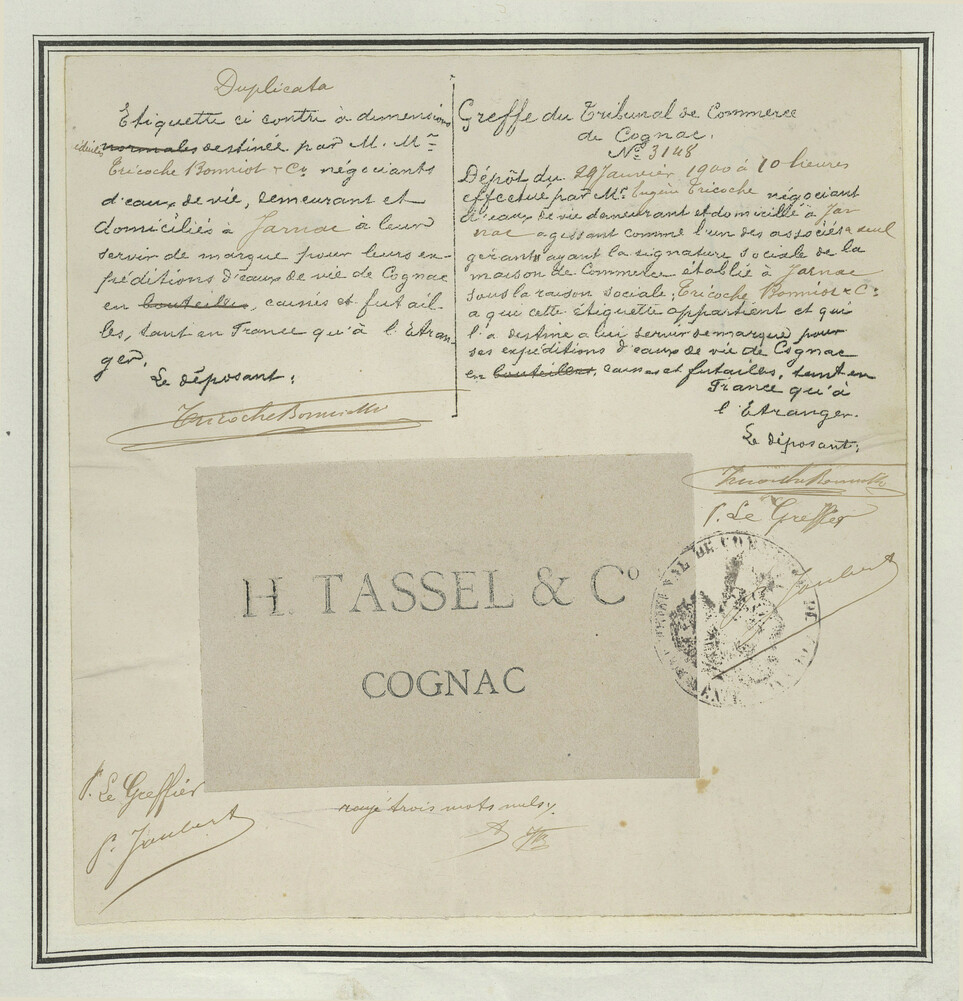 Duplicata
Etiquette ci contre à dimensions
normales destinée par M. Mrs
Tricoche Bonniot & Co négociants
d'eaux de vie, demeurant et
domiciliés à Jarnac à leur
servir de marque pour leurs ex-
péditions d'eaux de vie de Cognac
en bouteilles, caisses et futail-
les, tant en France qu'à l'Etran-
ger.
Le déposant:
Tricoche Bonniot & Co
Greffe du Tribunal de Commerce
de Cognac.
No 3148
Dépôt du 29 Janvier 1900 à 10 heures
effectué par Mr Eugène Tricoche négociant
d'eaux de vie demeurant et domicilié à Jar
nac agissant comme l'un des associés & seul
gérant ayant la signature sociale de la
maison de Commerce établie à Jarnac
sous la raison sociale: Tricoche Bonniot & Co
a qui cette étiquette appartient et qui
l'a destine a lui servir de marque pour
ses expéditions d'eaux de vie de Cognac
en bouteilles, caisses et futailles, tant en
France qu'à
l'Etranger.
Le déposant:
Tricoche Bonniot & Co
p. Le Greffier
Joubert
H. TASSEL & Co
COGNAC
p. Le Greffier
p. Joubert
rayé trois mots nuls